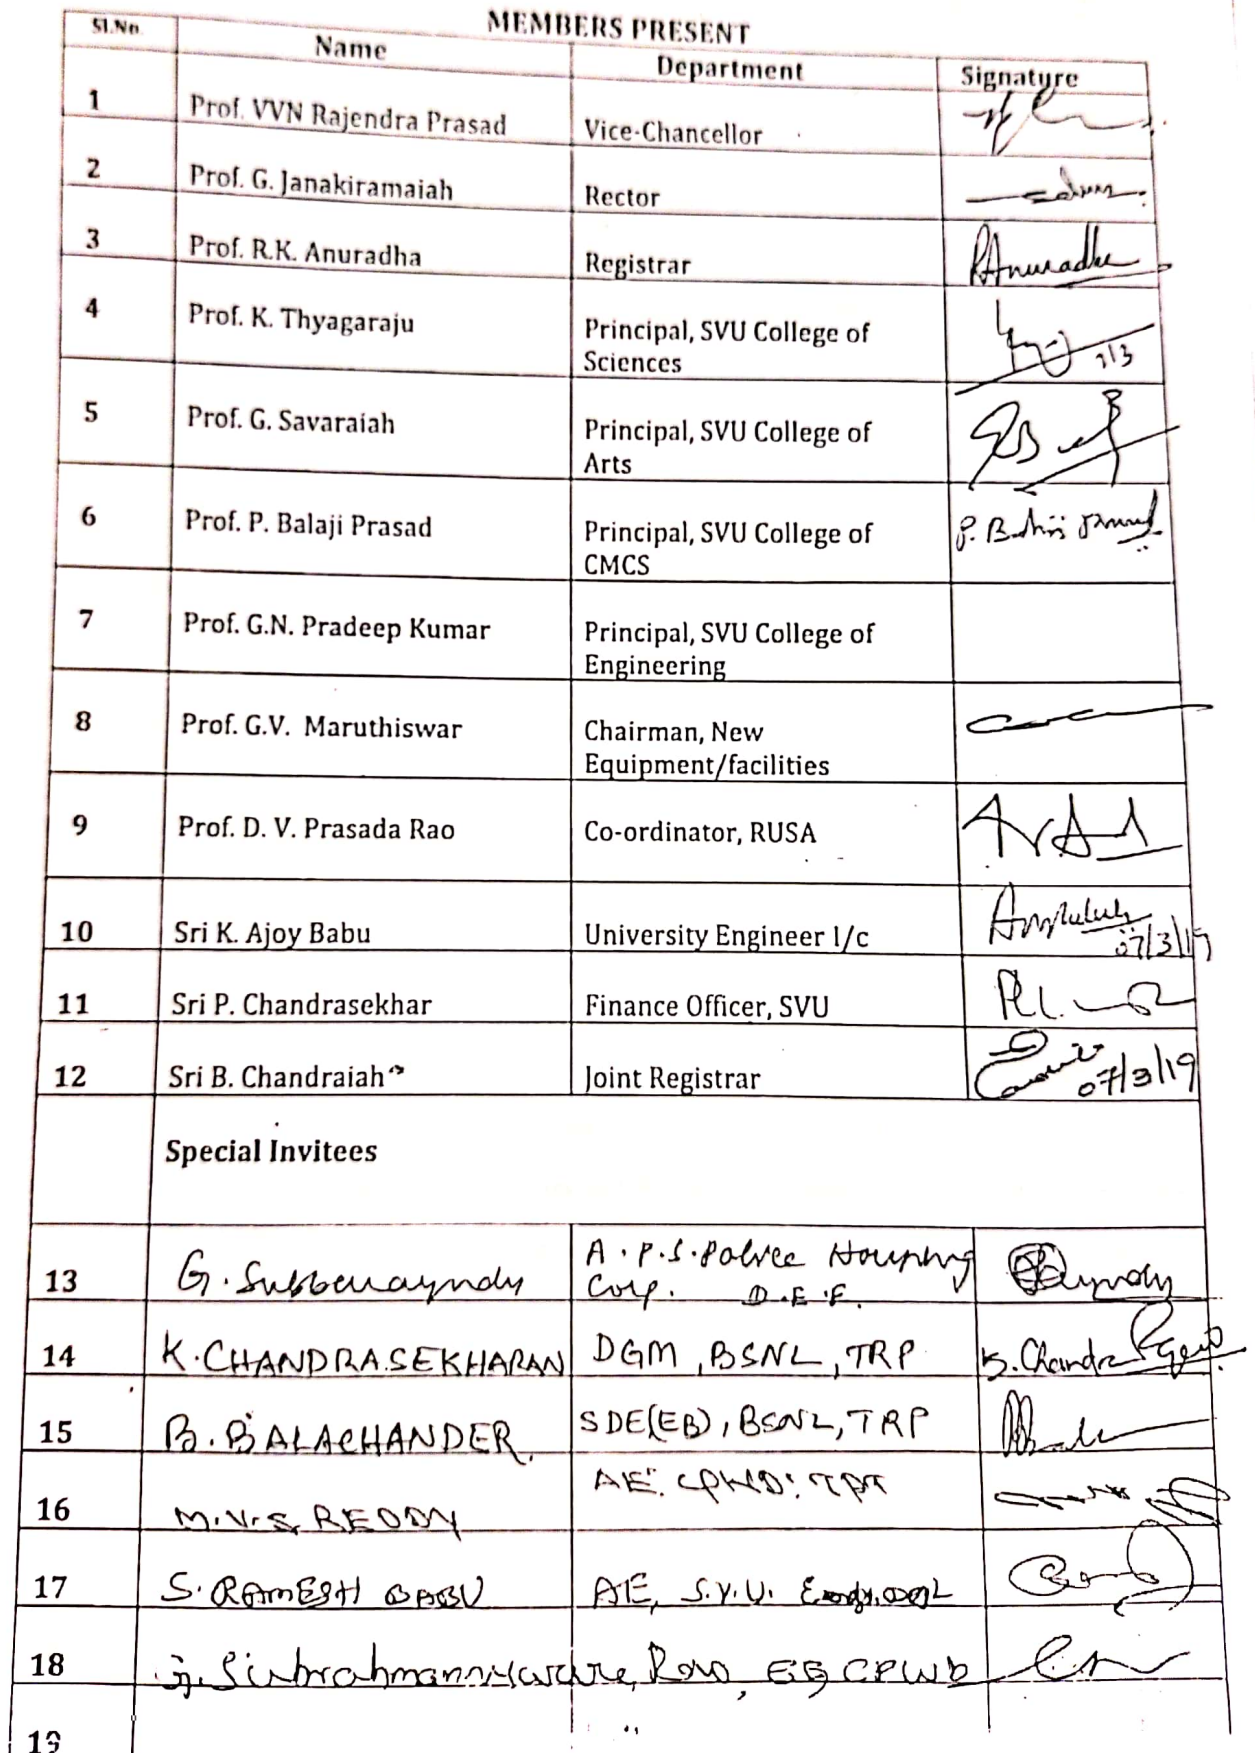 MEMBERS PRESENT
Sl.No. Name Department Signature
1 Prof. VVN Rajendra Prasad Vice-Chancellor
2 Prof. G. Janakiramaiah Rector
3 Prof. R.K. Anuradha Registrar RAnuradha
4 Prof. K. Thyagaraju Principal, SVU College of
Sciences 7/3
5 Prof. G. Savaraiah Principal, SVU College of
Arts
6 Prof. P. Balaji Prasad Principal, SVU College of
CMCS
7 Prof. G.N. Pradeep Kumar Principal, SVU College of
Engineering
8 Prof. G.V. Maruthiswar Chairman, New
Equipment/facilities
9 Prof. D. V. Prasada Rao Co-ordinator, RUSA
10 Sri K. Ajoy Babu University Engineer I/c 07/3/19
11 Sri P. Chandrasekhar Finance Officer, SVU
12 Sri B. Chandraiah Joint Registrar 07/3/19
Special Invitees
13 G. A.P.S. Police Housing
Corp. D.E.E.
14 K. CHANDRASEKHARAN DGM, BSNL, TRP K. Chandra
15 B. BALACHANDER. SDE(EB), BSNL, TRP
16 M.V.S. REDDY AE. CPWD. TPT
17 S. RAMESH BABU AE, S.V.U.
18 Rao, EE CPWD
19